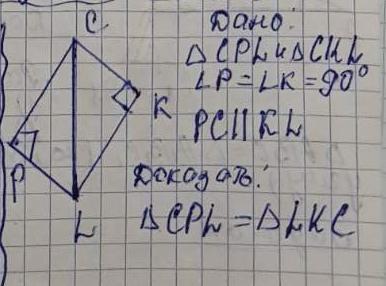 C
Дано:
△CPL и △CKL
∠P = ∠K = 90°
K
PC || KL
P
Доказать:
L
△CPL = △LKC